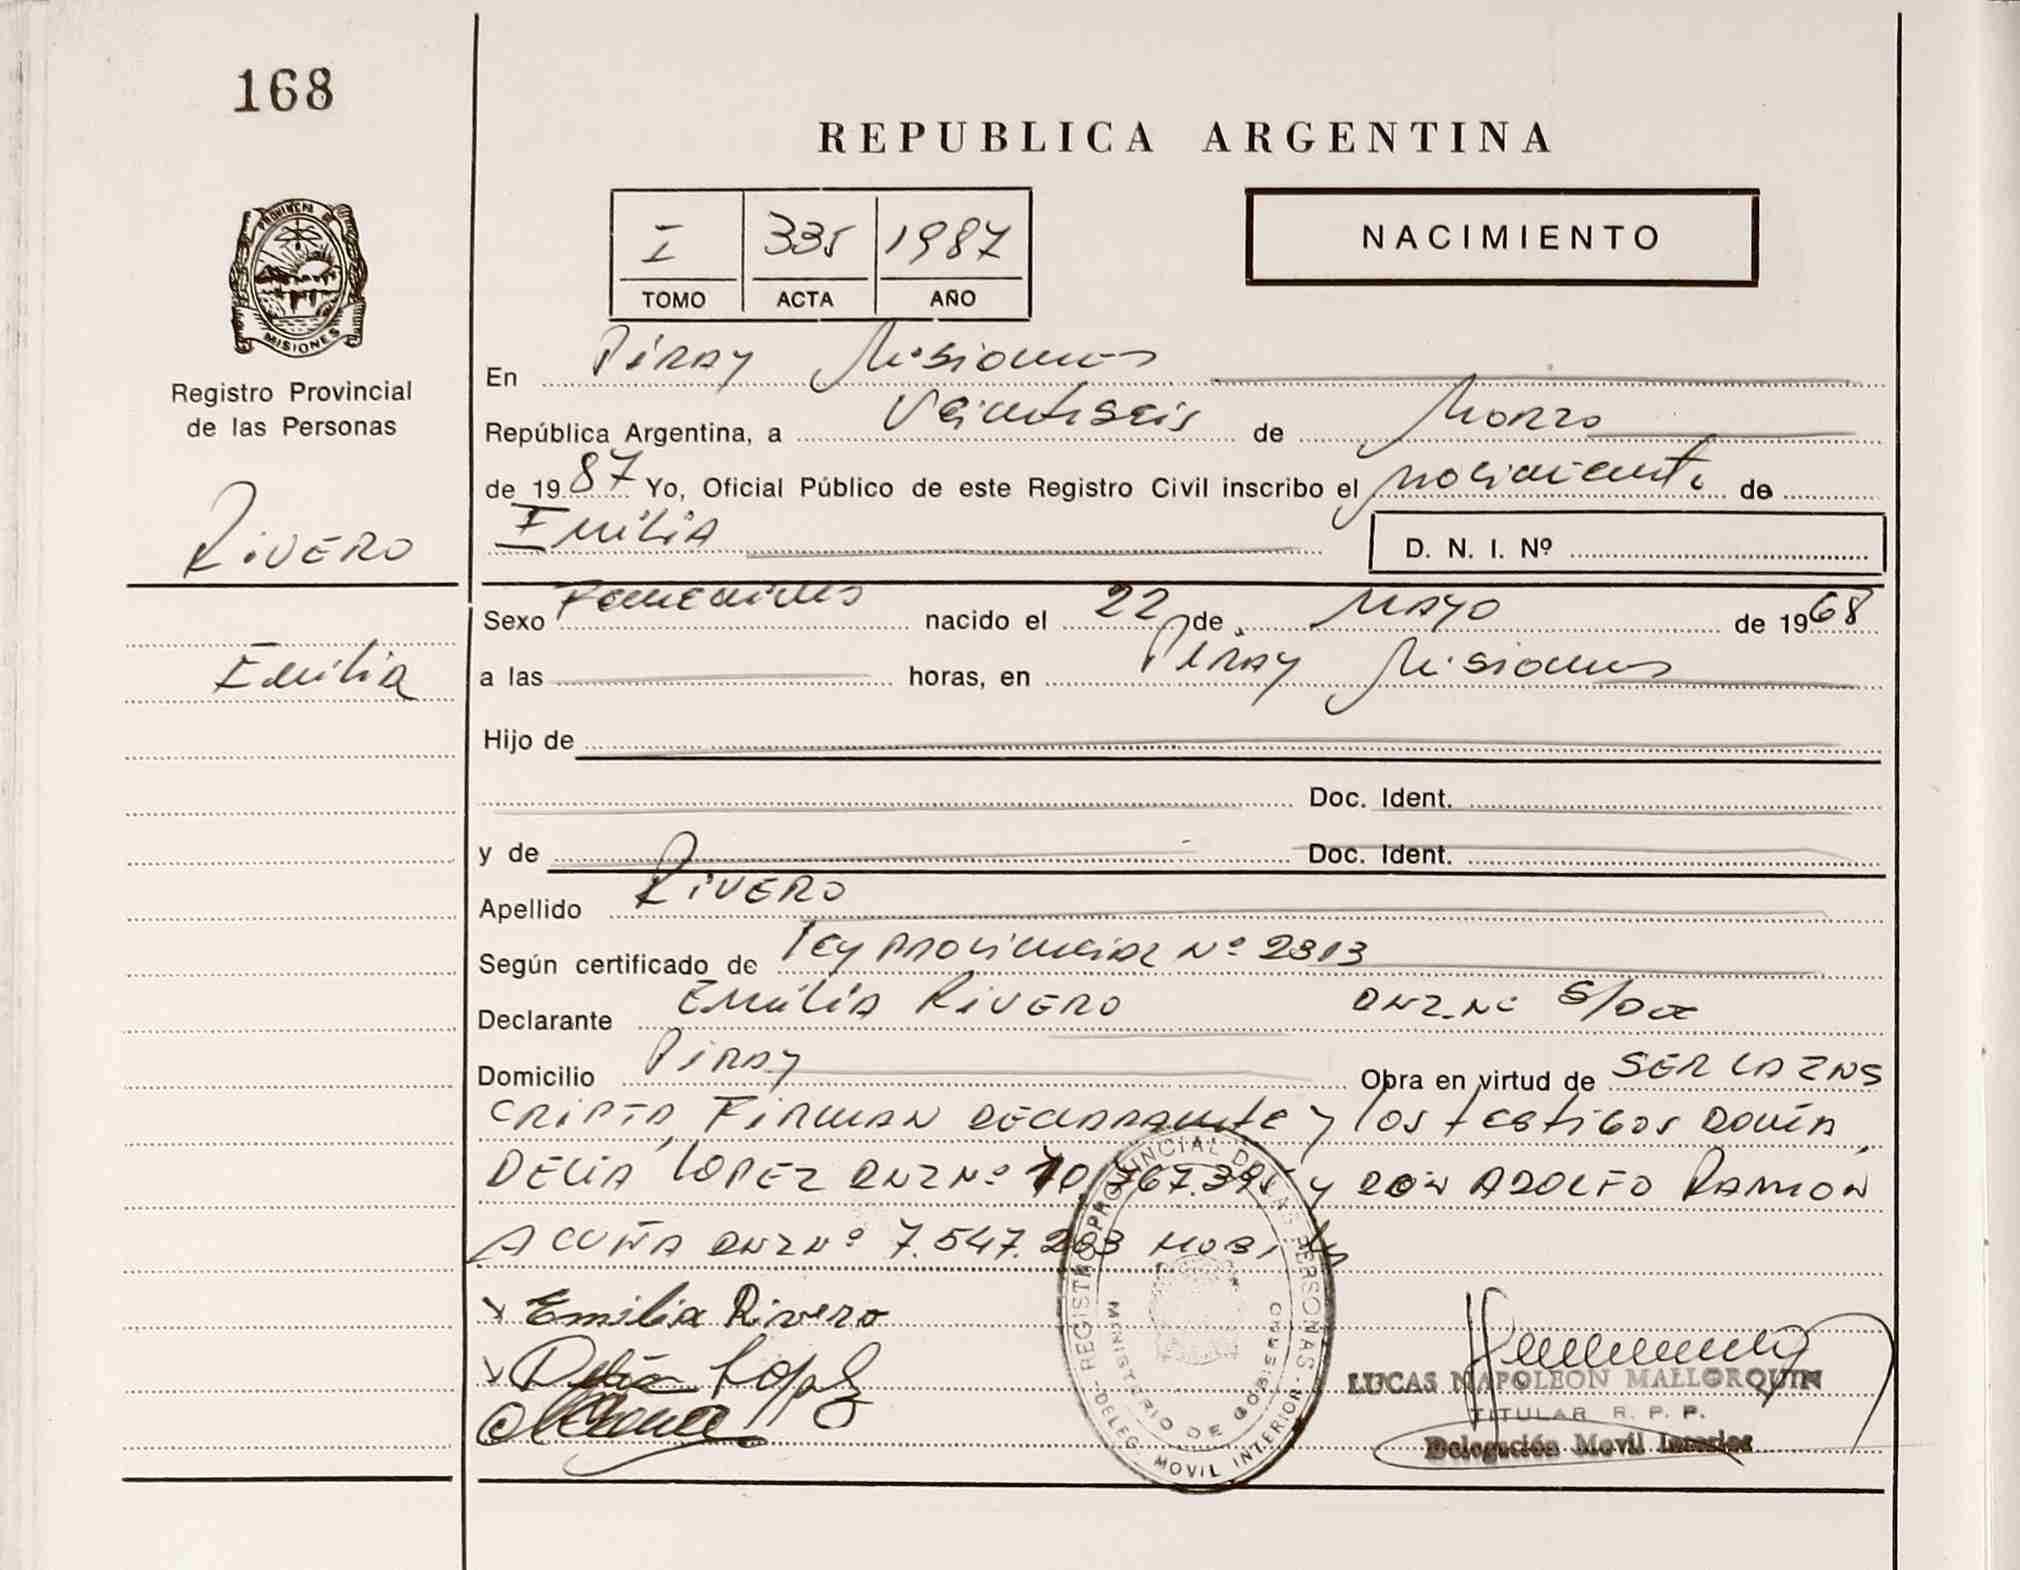 168
REPUBLICA ARGENTINA
PROVINCIA DE
MISIONES
I 335 1987
TOMO ACTA AÑO
NACIMIENTO
Registro Provincial
de las Personas
RIVERO
Emilia
En Piray Misiones
República Argentina, a Veintiseis de Marzo
de 1987 Yo, Oficial Público de este Registro Civil inscribo el nacimiento de
Emilia
D. N. I. Nº
Sexo Femenino nacido el 22 de Mayo de 1968
a las horas, en Piray Misiones
Hijo de
Doc. Ident.
y de Doc. Ident.
Apellido RIVERO
Según certificado de Ley Provincial Nº 2313
Declarante Emilia RIVERO DNI Nº S/
Domicilio Piray Obra en virtud de SER LA INS
CRIPTA, FIRMAN DECLARANTE y los testigos DOÑA
DELIA LOPEZ DNI Nº y DON ADOLFO RAMON
ACUÑA DNI Nº 7.547.
Emilia Rivero
Delia Lopez
REGISTRO PROVINCIAL DE LAS PERSONAS
MINISTERIO DE GOBIERNO
- DELEG. MOVIL INTERIOR -
LUCAS NAPOLEON MALLORQUIN
TITULAR R. P. P.
Delegación Movil Interior